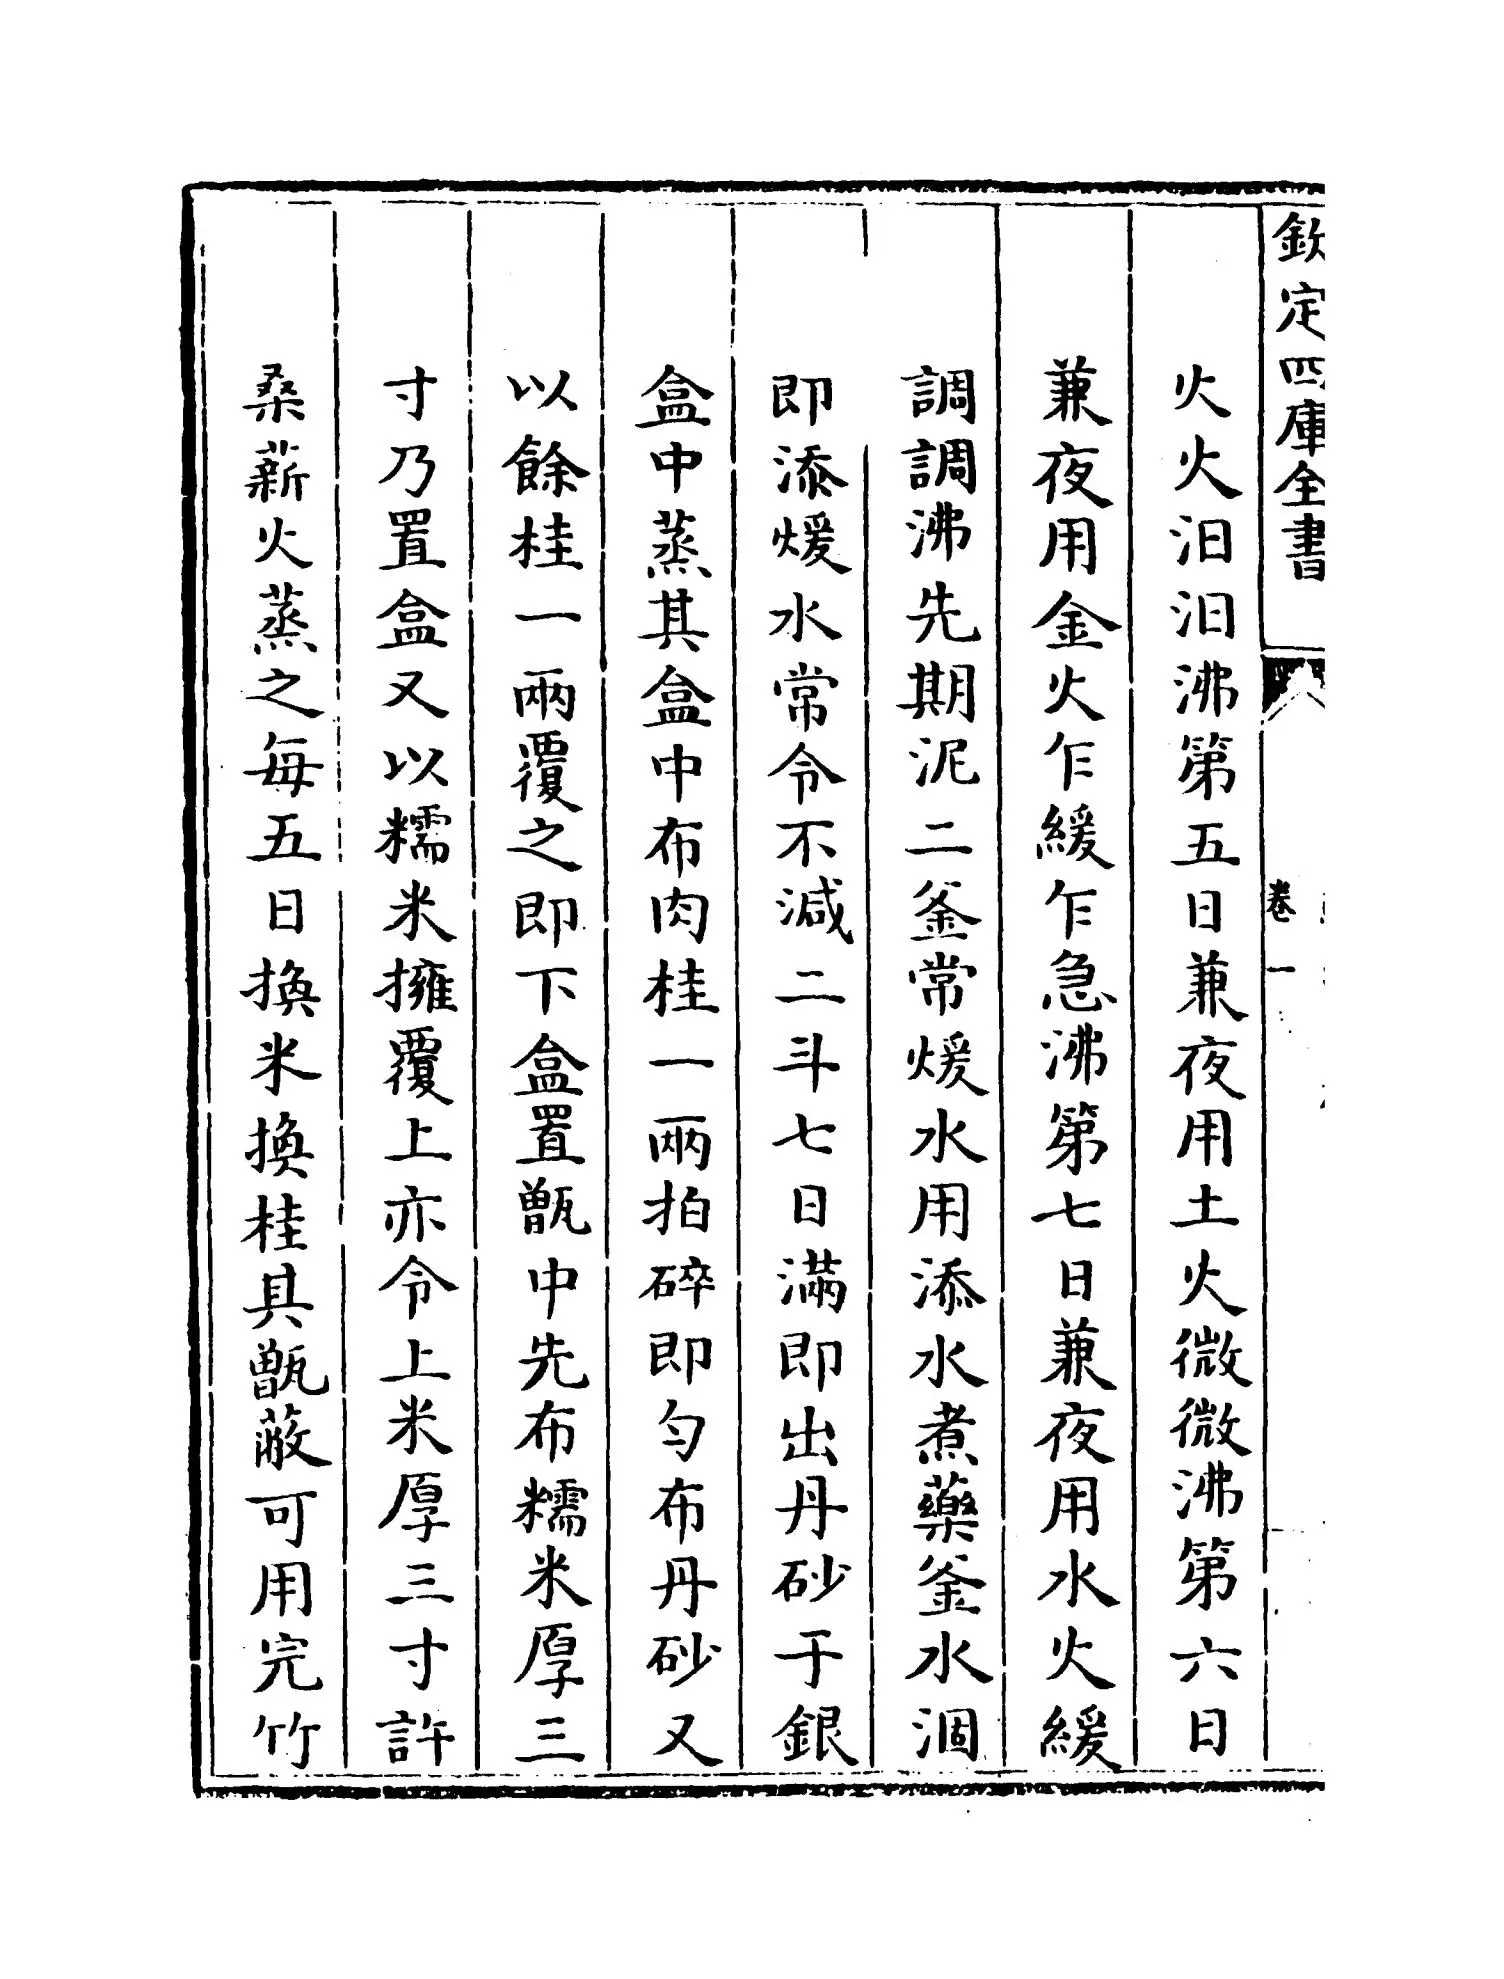 欽定四庫全書
卷一
火火汩汩沸第五日兼夜用土火微微沸第六日
兼夜用金火乍緩乍急沸第七日兼夜用水火緩
調調沸先期泥二釜常煖水用添水煮藥釜水涸
即添煖水常令不減二斗七日滿即出丹砂于銀
盒中蒸其盒中布肉桂一兩拍碎即勻布丹砂又
以餘桂一兩覆之即下盒置甑中先布糯米厚三
寸乃置盒又以糯米擁覆上亦令上米厚三寸許
桑薪火蒸之每五日換米換桂其甑蔽可用完竹